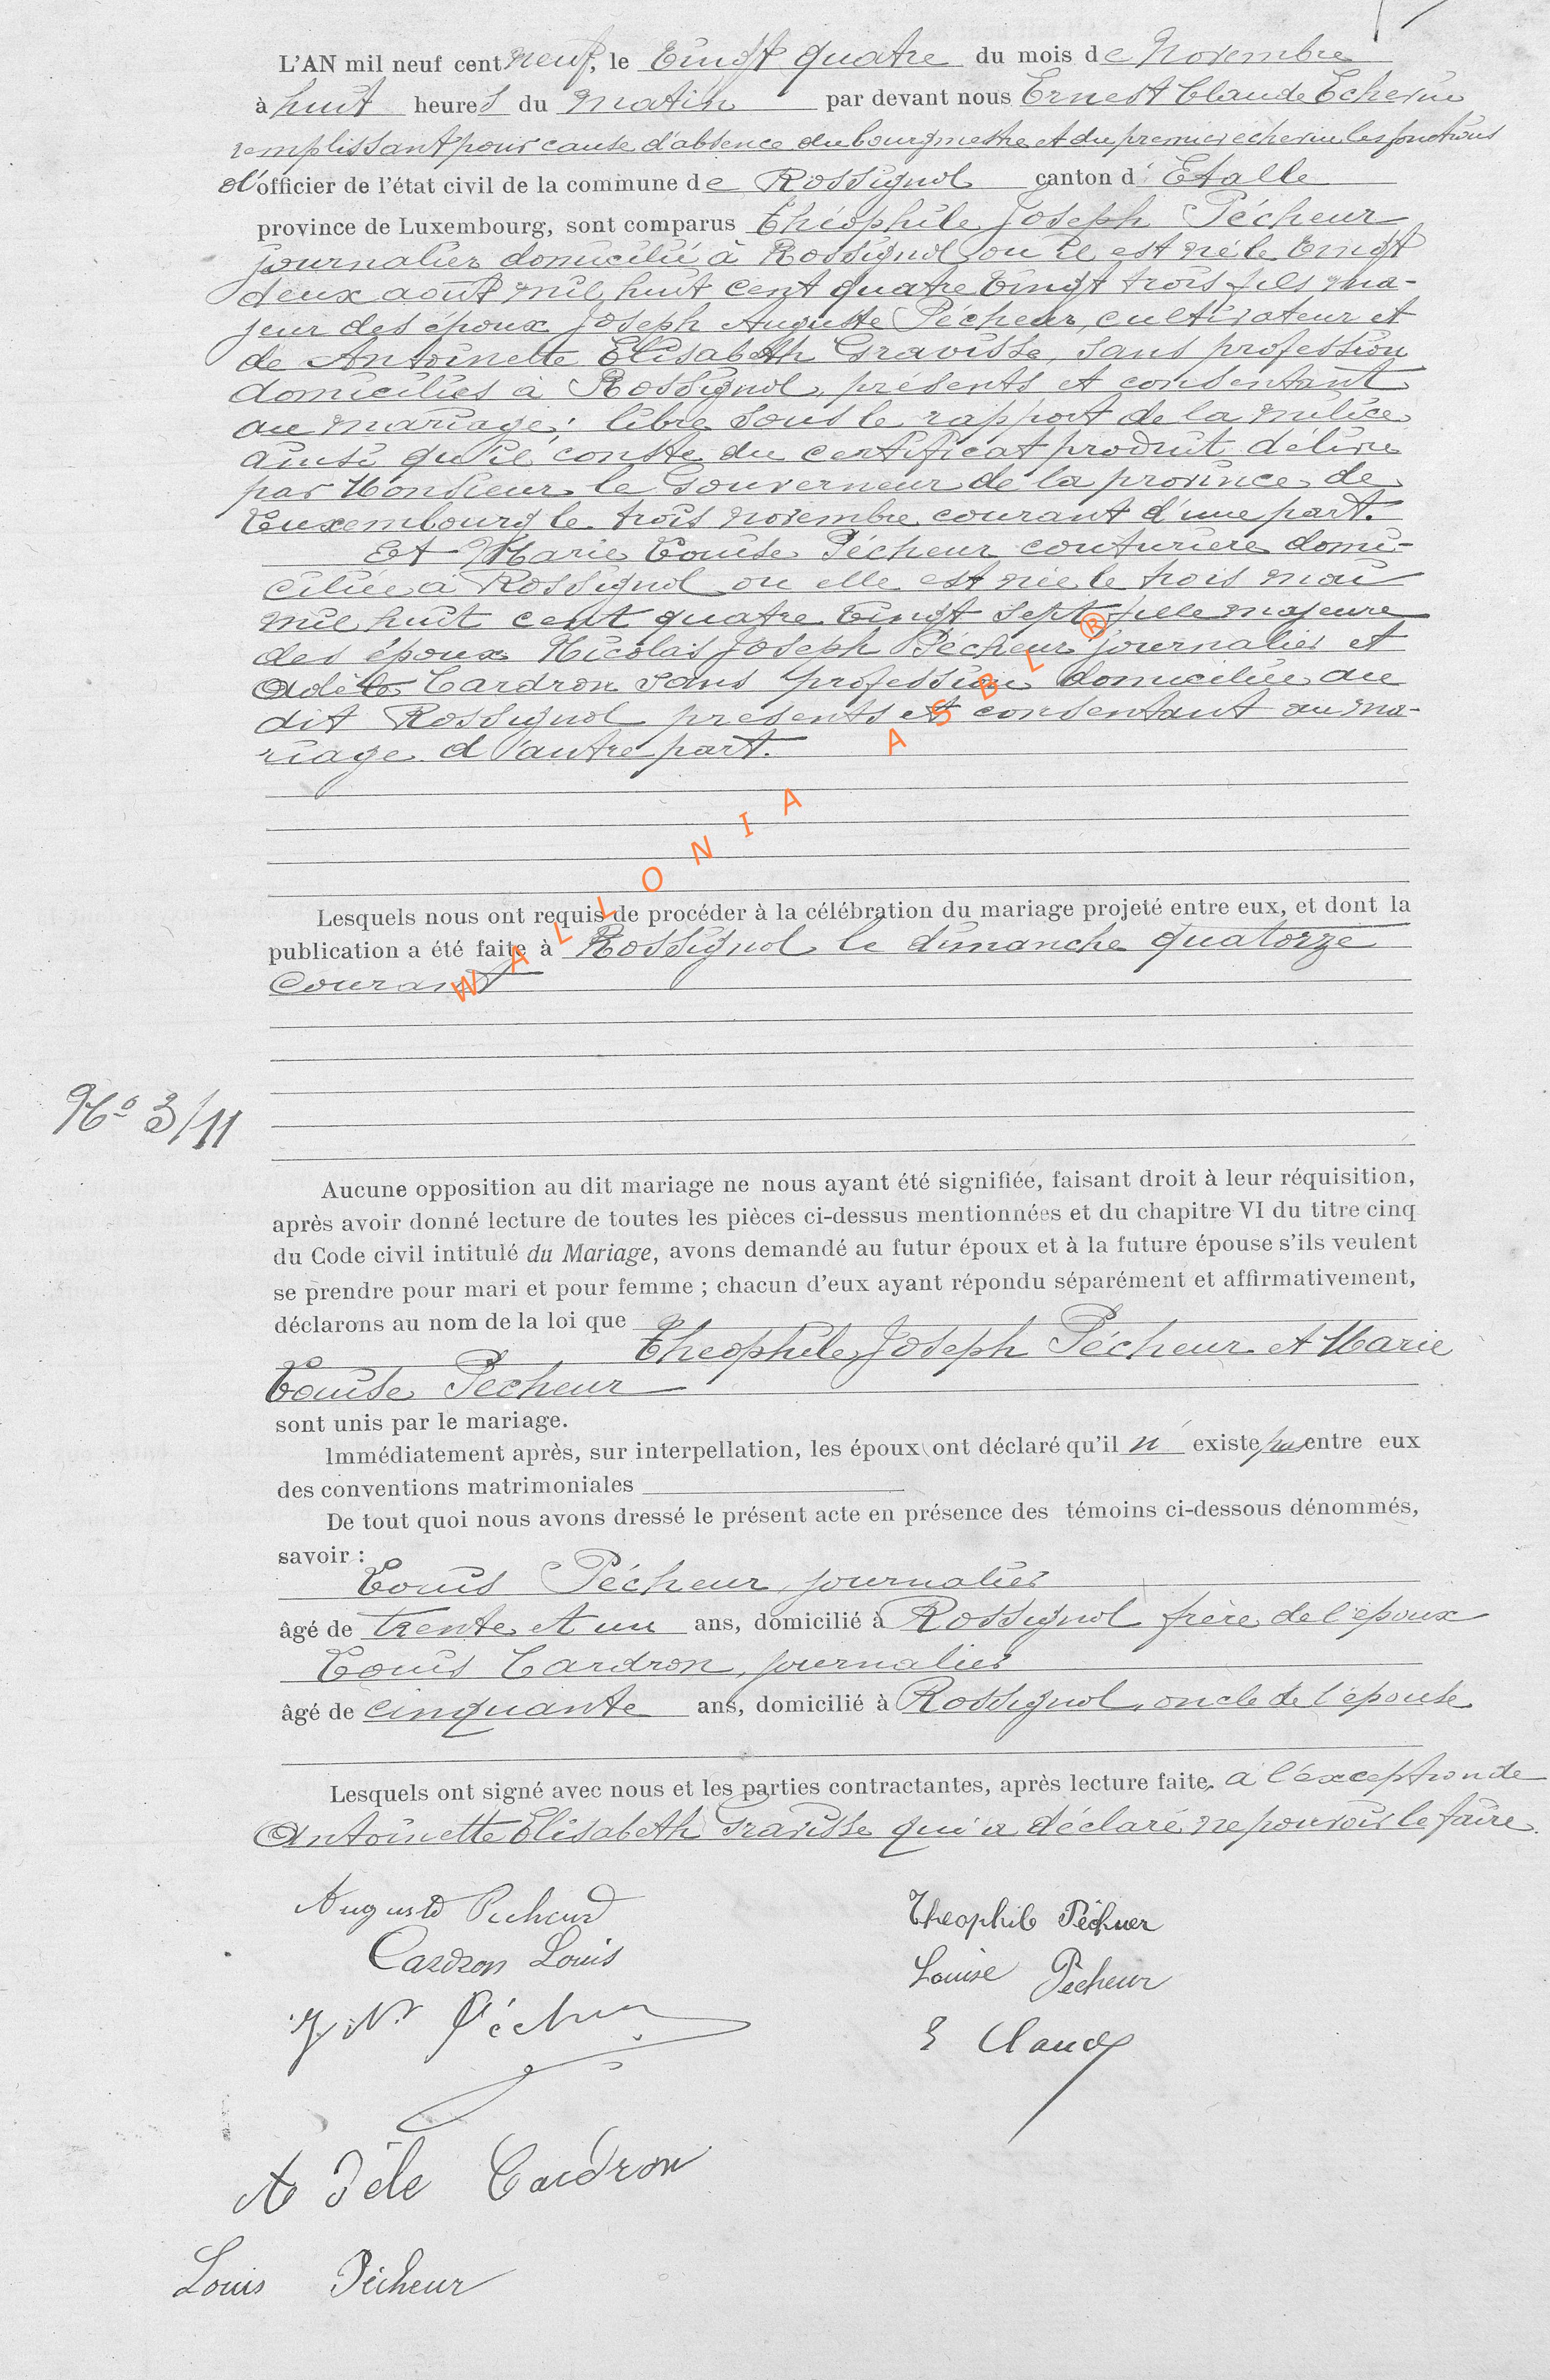 L'AN mil neuf cent neuf, le vingt quatre du mois de Novembre
à huit heures du matin par devant nous Ernest Claude Echevin
remplissant pour cause d'absence du bourgmestre et du premier echevin les fonctions
d'officier de l'état civil de la commune de Rossignol canton d'Etalle
province de Luxembourg, sont comparus Théophile Joseph Pécheur
journalier domicilié à Rossignol où il est né le vingt
deux août mil huit cent quatre vingt trois fils ma-
jeur des époux Joseph Auguste Pécheur, cultivateur et
de Antoinette Elisabeth Gravisse, sans profession
domiciliés à Rossignol, présents et consentant
au mariage; libre sous le rapport de la milice
ainsi qu'il conste du certificat produit délivré
par Monsieur le Gouverneur de la province de
Luxembourg le trois novembre courant d'une part.
Et Marie Louise Pécheur couturière domi-
ciliée à Rossignol ou elle est née le trois mai
mil huit cent quatre vingt sept fille majeure
des époux Nicolas Joseph Pécheur journalier et
Adèle Cardron sans profession domiciliés au
dit Rossignol presents et consentant au ma-
riage d'autre part.
WALLONIA ASBL ®
Lesquels nous ont requis de procéder à la célébration du mariage projeté entre eux, et dont la
publication a été faite à Rossignol le dimanche quatorze
courant
N° 3/11
Aucune opposition au dit mariage ne nous ayant été signifiée, faisant droit à leur réquisition,
après avoir donné lecture de toutes les pièces ci-dessus mentionnées et du chapitre VI du titre cinq
du Code civil intitulé du Mariage, avons demandé au futur époux et à la future épouse s'ils veulent
se prendre pour mari et pour femme ; chacun d'eux ayant répondu séparément et affirmativement,
déclarons au nom de la loi que
Théophile Joseph Pécheur et Marie
Louise Pecheur
sont unis par le mariage.
Immédiatement après, sur interpellation, les époux ont déclaré qu'il n' existe pas entre eux
des conventions matrimoniales
De tout quoi nous avons dressé le présent acte en présence des témoins ci-dessous dénommés,
savoir :
Louis Pécheur, journalier
âgé de trente et un ans, domicilié à Rossignol frère de l'époux
Louis Cardron, journalier
âgé de cinquante ans, domicilié à Rossignol, oncle de l'épouse
Lesquels ont signé avec nous et les parties contractantes, après lecture faite. à l'exception de
Antoinette Elisabeth Gravisse qui a déclaré ne pouvoir le faire.
Auguste Pecheur Theophile Pécheur
Cardron Louis Louise Pecheur
J Nas Pécheur E Claude
Adèle Cardron
Louis Pécheur